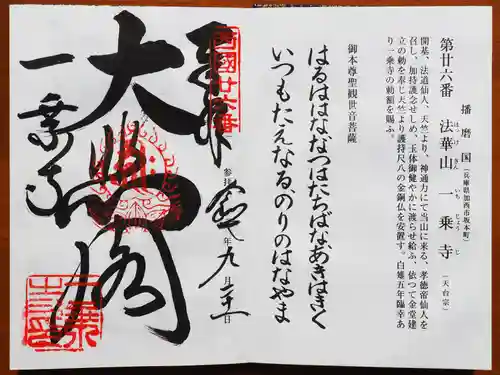 第廿六番 法華山 一乗寺
ほっけさん いちじょうじ
播磨国
（兵庫県加西市坂本町）
（天台宗）
開基、法道仙人、天竺より、神通力にて当山に来る、孝徳帝仙人を
召し、加持護念せしめ、玉体御健やかに渡らせ給ふ、依つて金堂建
立の勅を奉じ天竺より護持尺八の金銅仏を安置す。白雉五年臨幸あ
り一乗寺の勅額を賜ふ。
御本尊聖観世音菩薩
はるははななつはたちばなあきはきく
いつもたえなるのりのはなやま
奉拝
西國廿六番
参拝
年九月二十一日
大悲閣
一乗寺